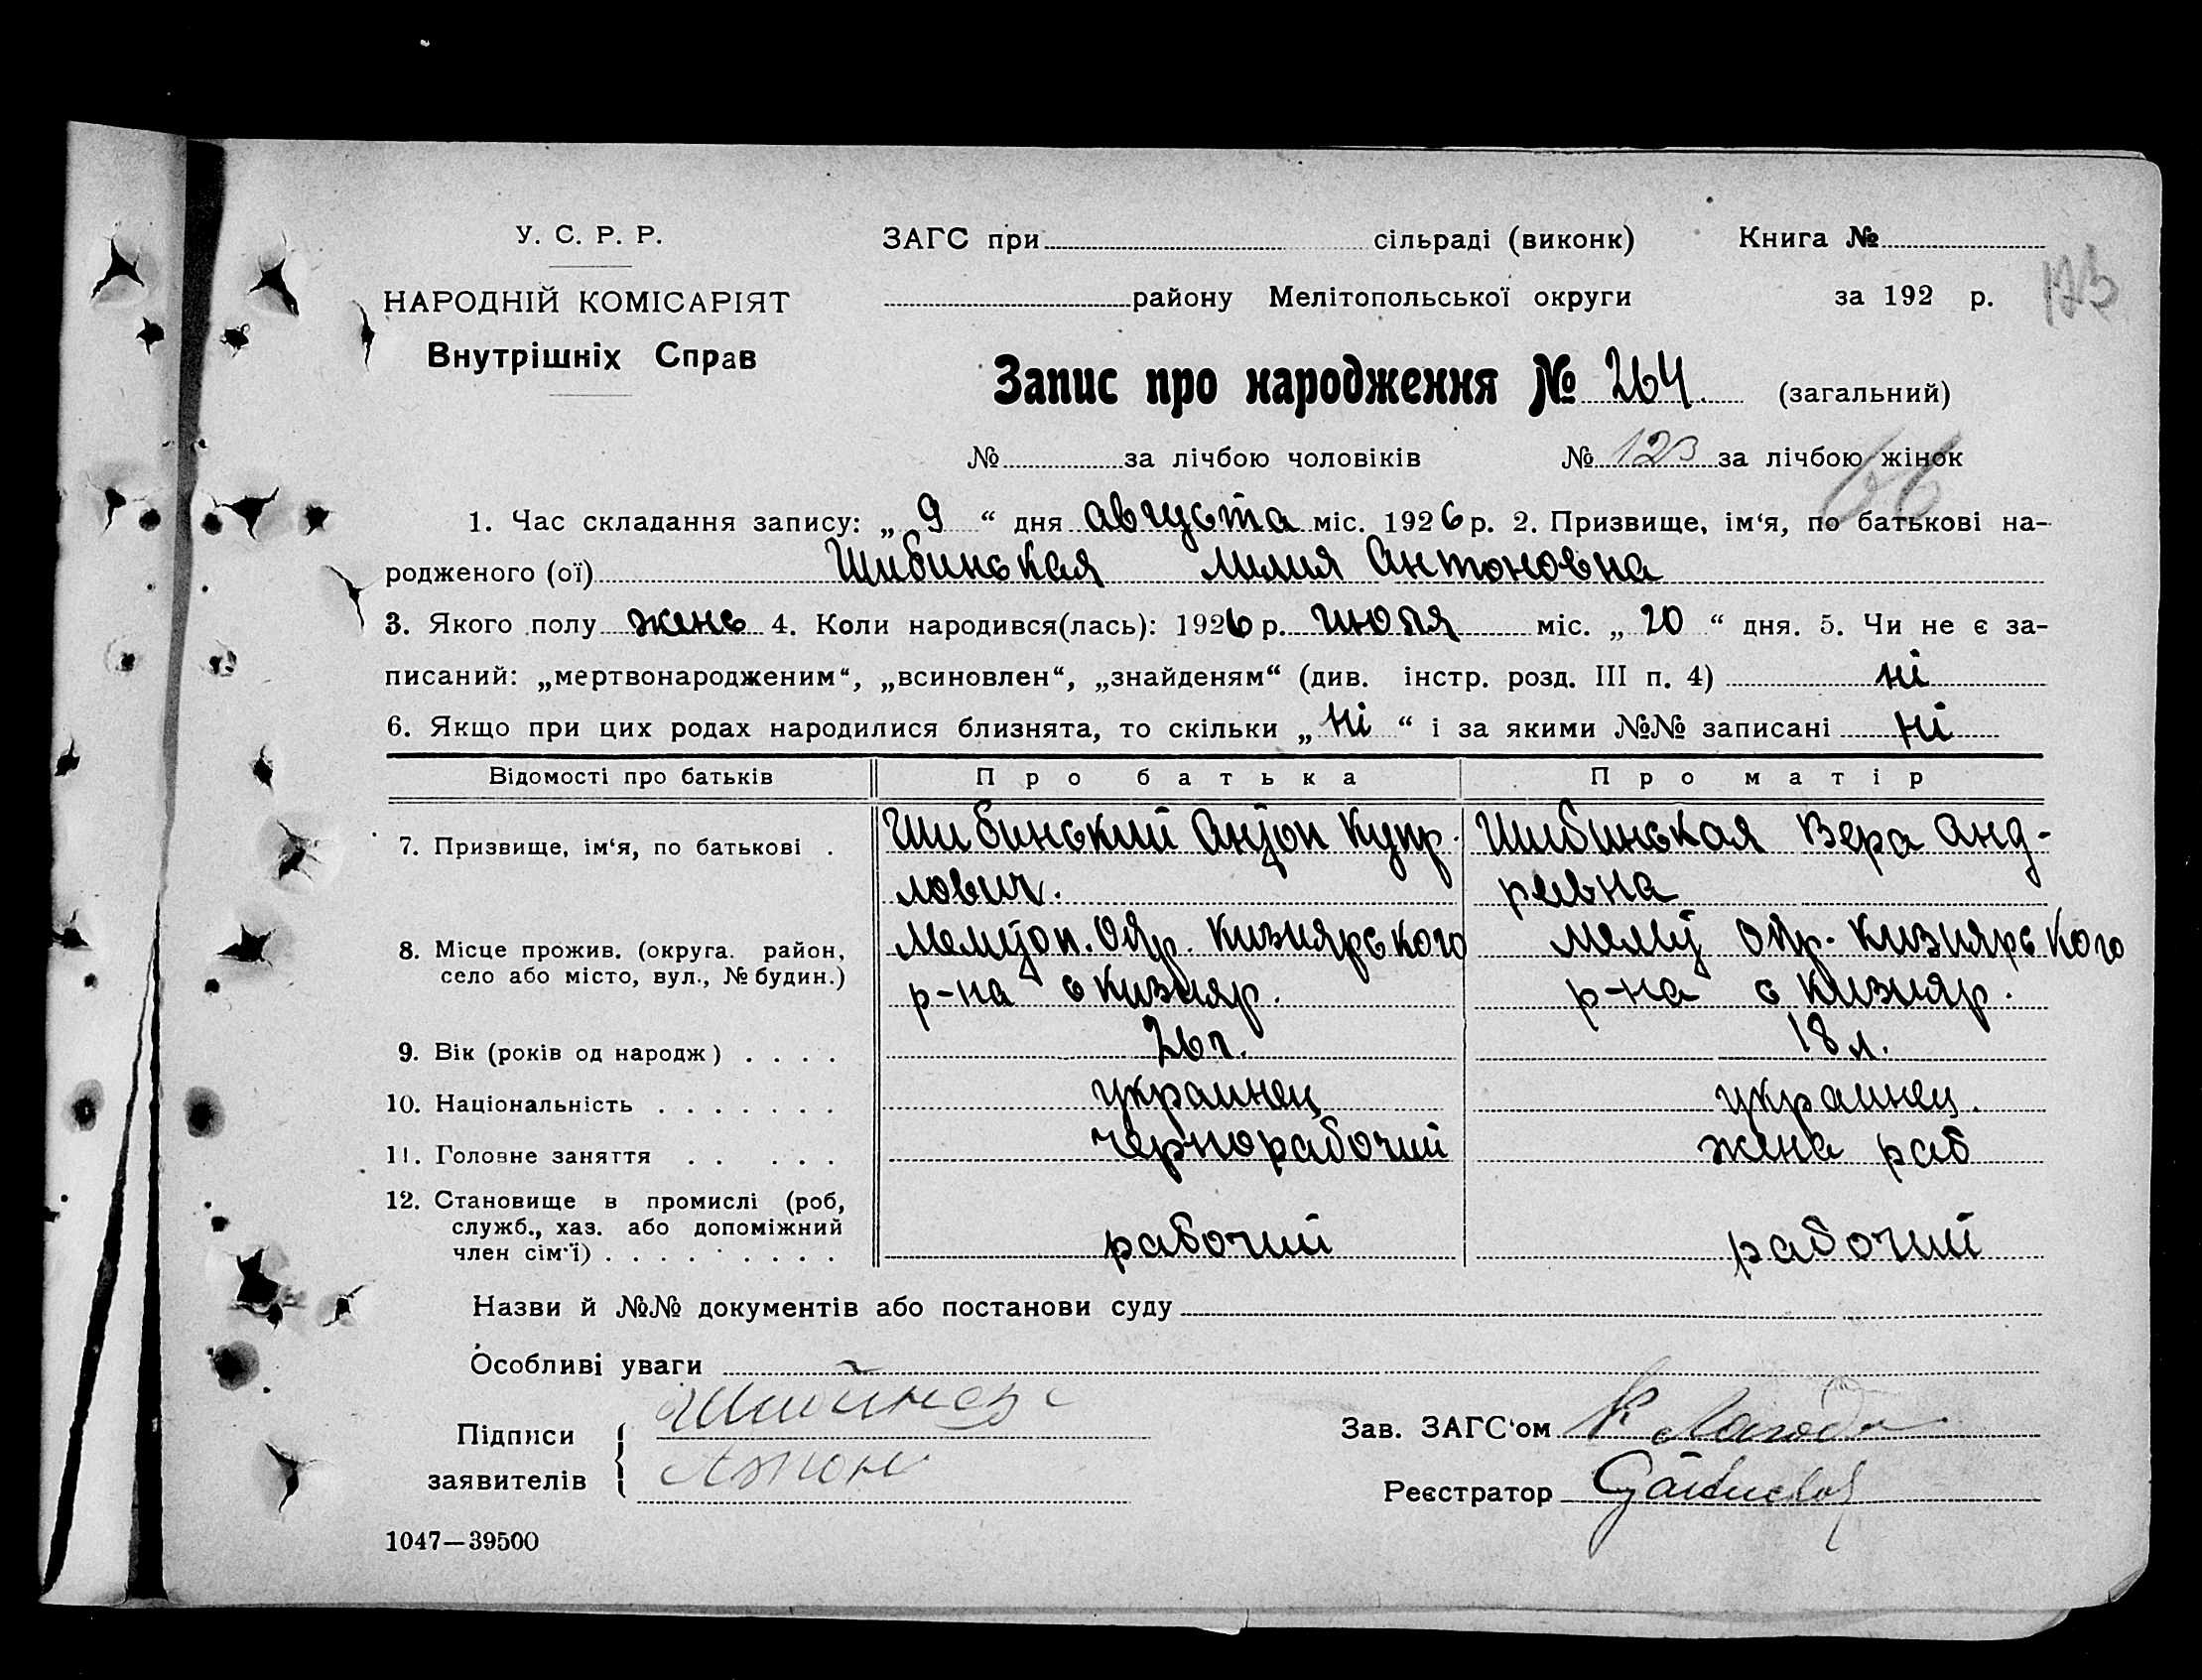 У. С. Р. Р.
НАРОДНІЙ КОМІСАРІЯТ
Внутрішніх Справ
ЗАГС при сільраді (виконк) Книга №
району Мелітопольської округи за 192 р.
Запис про народження № 264 (загальний)
№ за лічбою чоловіків № 123 за лічбою жінок
1. Час складання запису: „ 9 “ дня августа міс. 1926 р. 2. Призвище, ім‘я, по батькові на-
родженого (ої) Шибинская Лилия Антоновна
3. Якого полу женс 4. Коли народився(лась): 1926 р. июля міс. „ 20 “ дня. 5. Чи не є за-
писаний: „мертвонародженим“, „всиновлен“, „знайденям“ (див. інстр. розд. III п. 4) ні
6. Якщо при цих родах народилися близнята, то скільки „ ні “ і за якими №№ записані ні
Відомості про батьків Про батька Про матір
7. Призвище, ім‘я, по батькові . Шибинский Антон Шибинская Вера Анд-
реевна
8. Місце прожив. (округа. район, Мелитоп. Окр. Кизиярского Мелит Окр. Кизиярского
село або місто, вул., № будин.) р-на с Кизияр. р-на с Кизияр.
9. Вік (років од народж) . . . . 26 г. 18 л.
10. Національність . . . . . . . украинец украинец.
11. Головне заняття . . . . . чернорабочий жена раб
12. Становище в промислі (роб,
служб., хаз. або допоміжний рабочий рабочий
член сім‘ї) . . . . . . . . .
Назви й №№ документів або постанови суду
Особливі уваги
Підписи
заявителів Антон
Зав. ЗАГС‘ом
Реєстратор
1047—39500